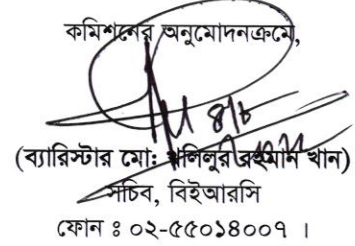 কমিশনের অনুমোদনক্রমে,
(ব্যারিস্টার মো: খলিলুর রহমান খান)
সচিব, বিইআরসি
ফোন ঃ ০২-৫৫০১৪০০৭ ।